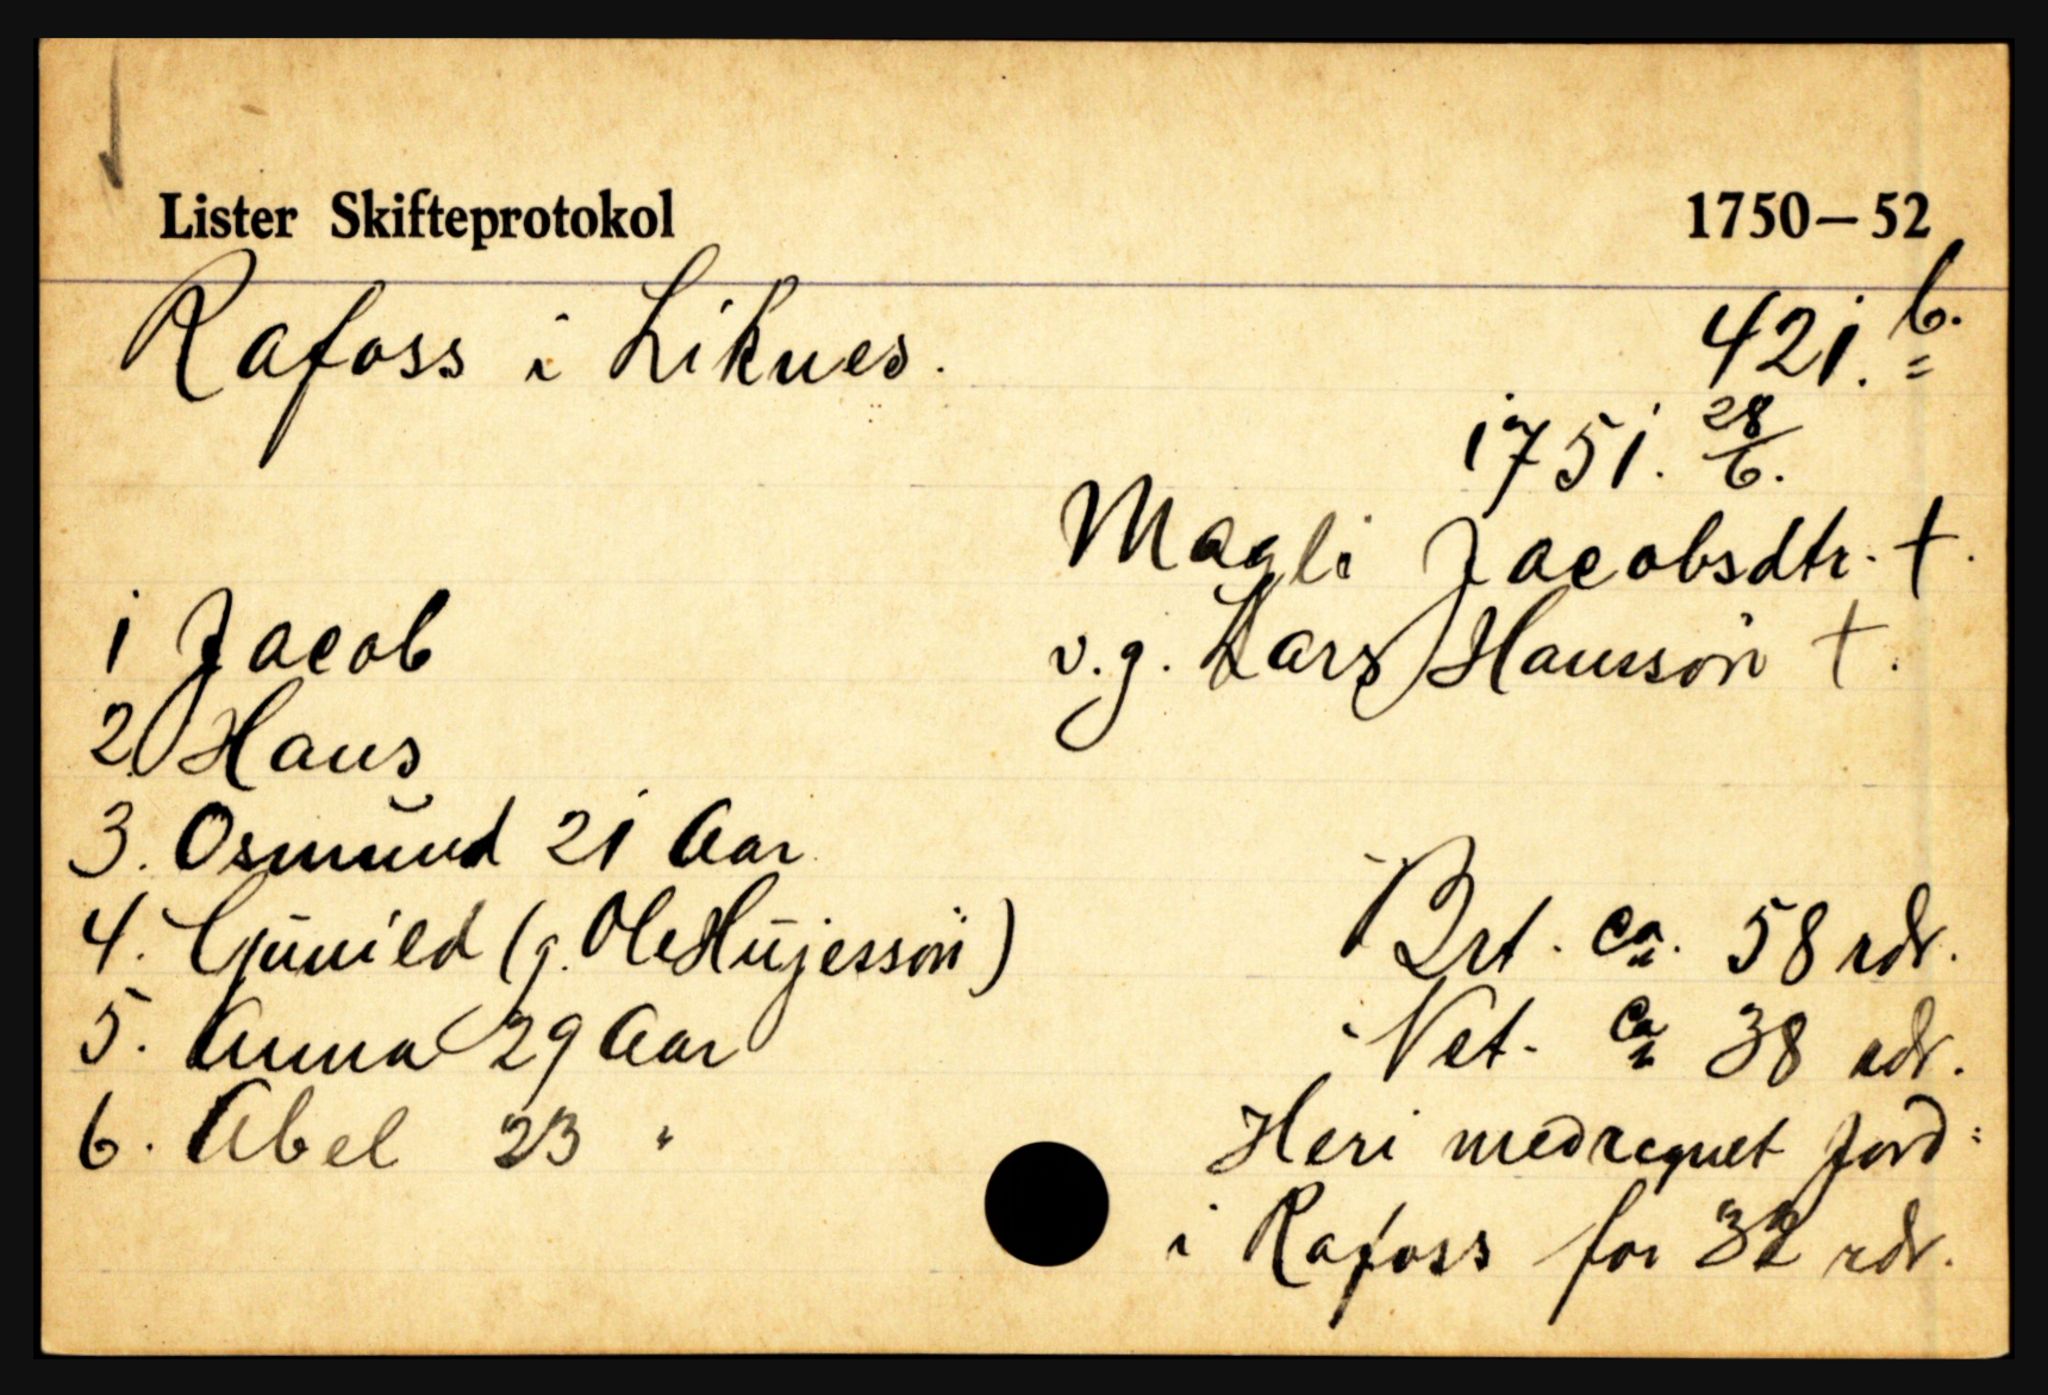 Lister Skifteprotokol 1750—52
Rafoss i Liknes. 421. b.
1751. 28/6.
Magli Jacobsdtr. †.
v.g. Lars Hansson †.
1 Jacob
2. Hans
3. Osmund 21 Aar
4. Gunild (g. Ole Hujesson)
5. Anna 29 Aar
6. Abel 23 "
Brt. ca. 58 rdr.
Net. ca 38 rdr.
Heri medregnet Jord:
i Rafoss for 32 rdr.